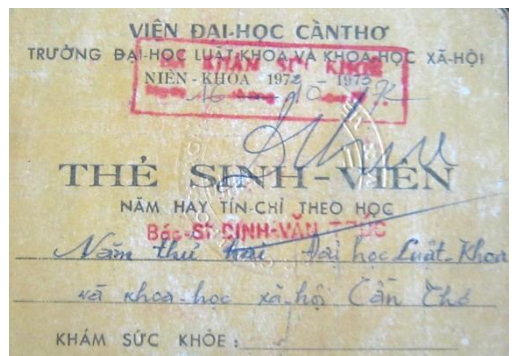 VIỆN ĐẠI-HỌC CẦNTHƠ
TRƯỜNG ĐẠI-HỌC LUẬT-KHOA VÀ KHOA-HỌC XÃ-HỘI
KHÁM SỨC KHỎE
NIÊN-KHOA 1972-1973
THẺ SINH-VIÊN
NĂM HAY TÍN-CHỈ THEO HỌC
Bác-Sĩ ĐINH-VĂN
Năm thứ hai Đại học Luật-Khoa
và khoa-học xã-hội Cần Thơ
KHÁM SỨC KHỎE :